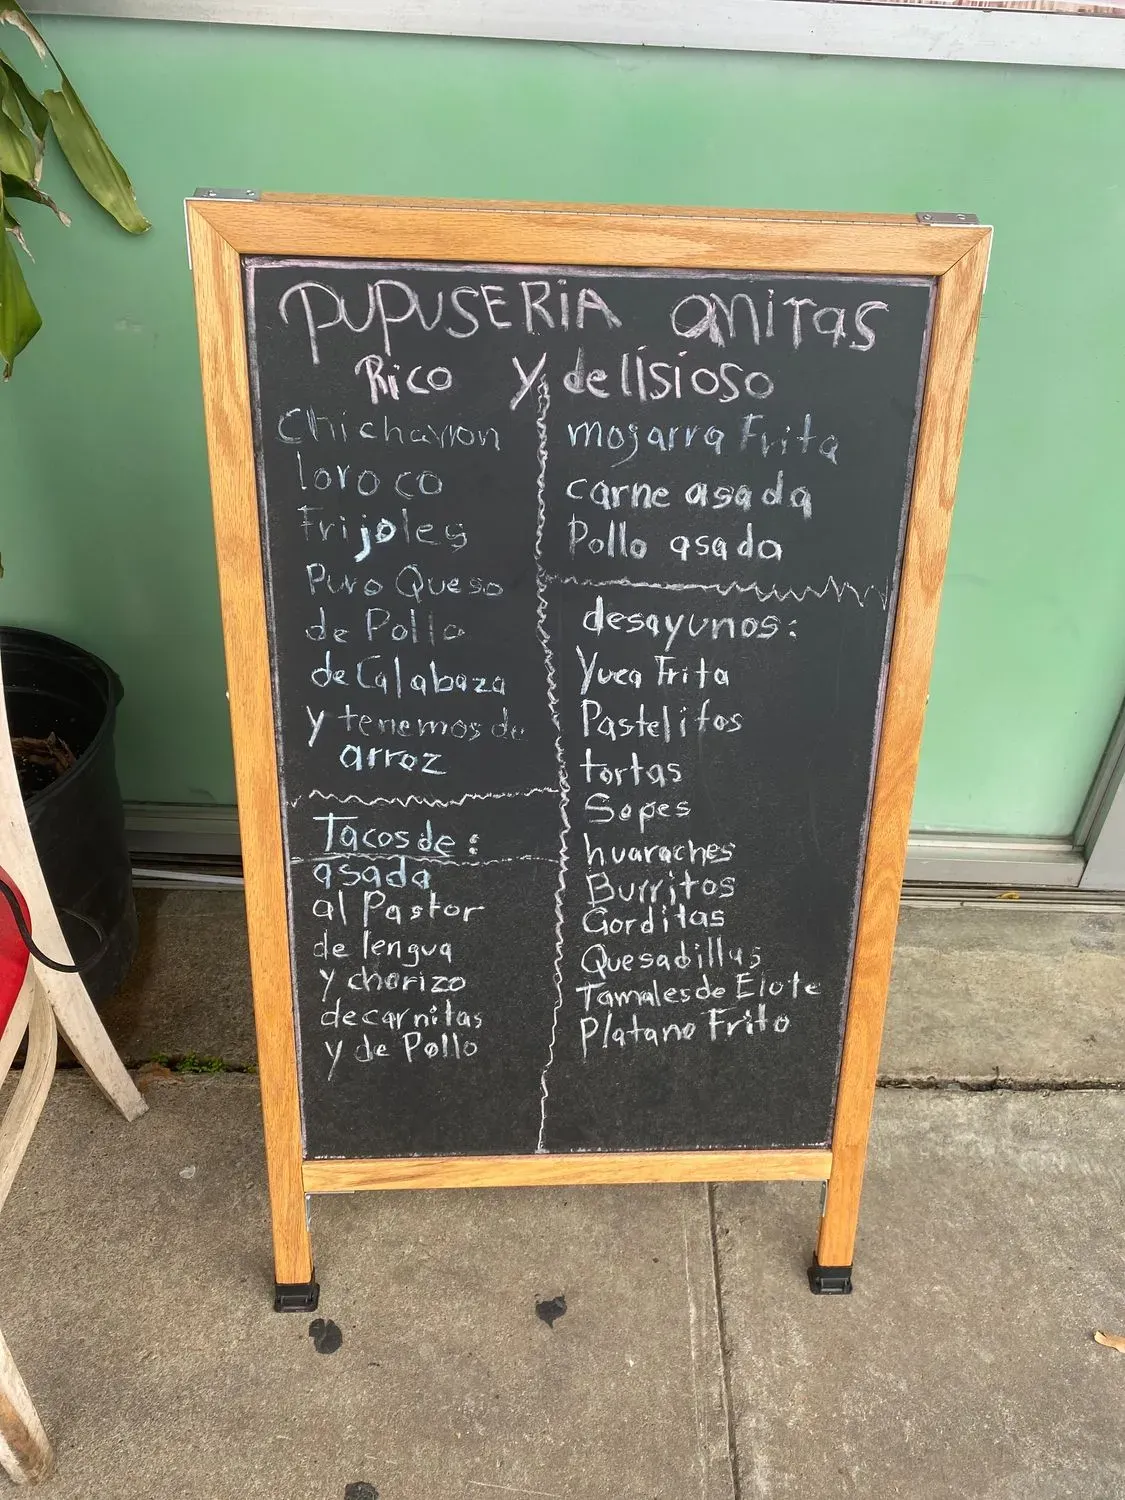 PUPUSERIA ANITAS
Rico y delisioso
Chicharron
loroco
Frijoles
Puro Queso
de Pollo
de Calabaza
y tenemos de
arroz
Tacos de:
asada
al Pastor
de lengua
y chorizo
de carnitas
y de Pollo
mojarra Frita
carne asada
Pollo asada
desayunos:
Yuca Frita
Pastelitos
tortas
Sopes
huaraches
Burritos
Gorditas
Quesadillas
Tamales de Elote
Platano Frito